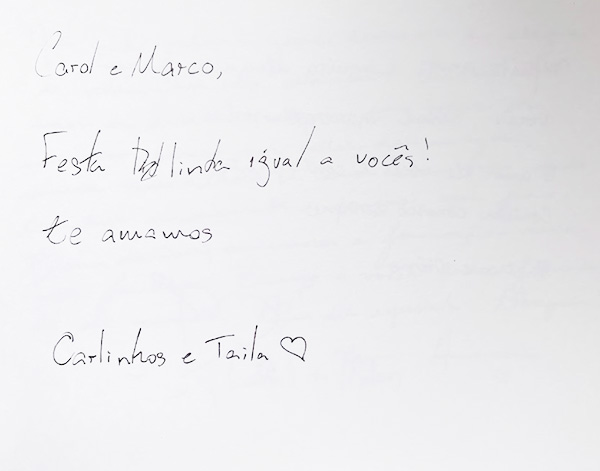 Carol e Marco,
Festa linda igual a vocês!
te amamos
Carlinhos e Taila ♡